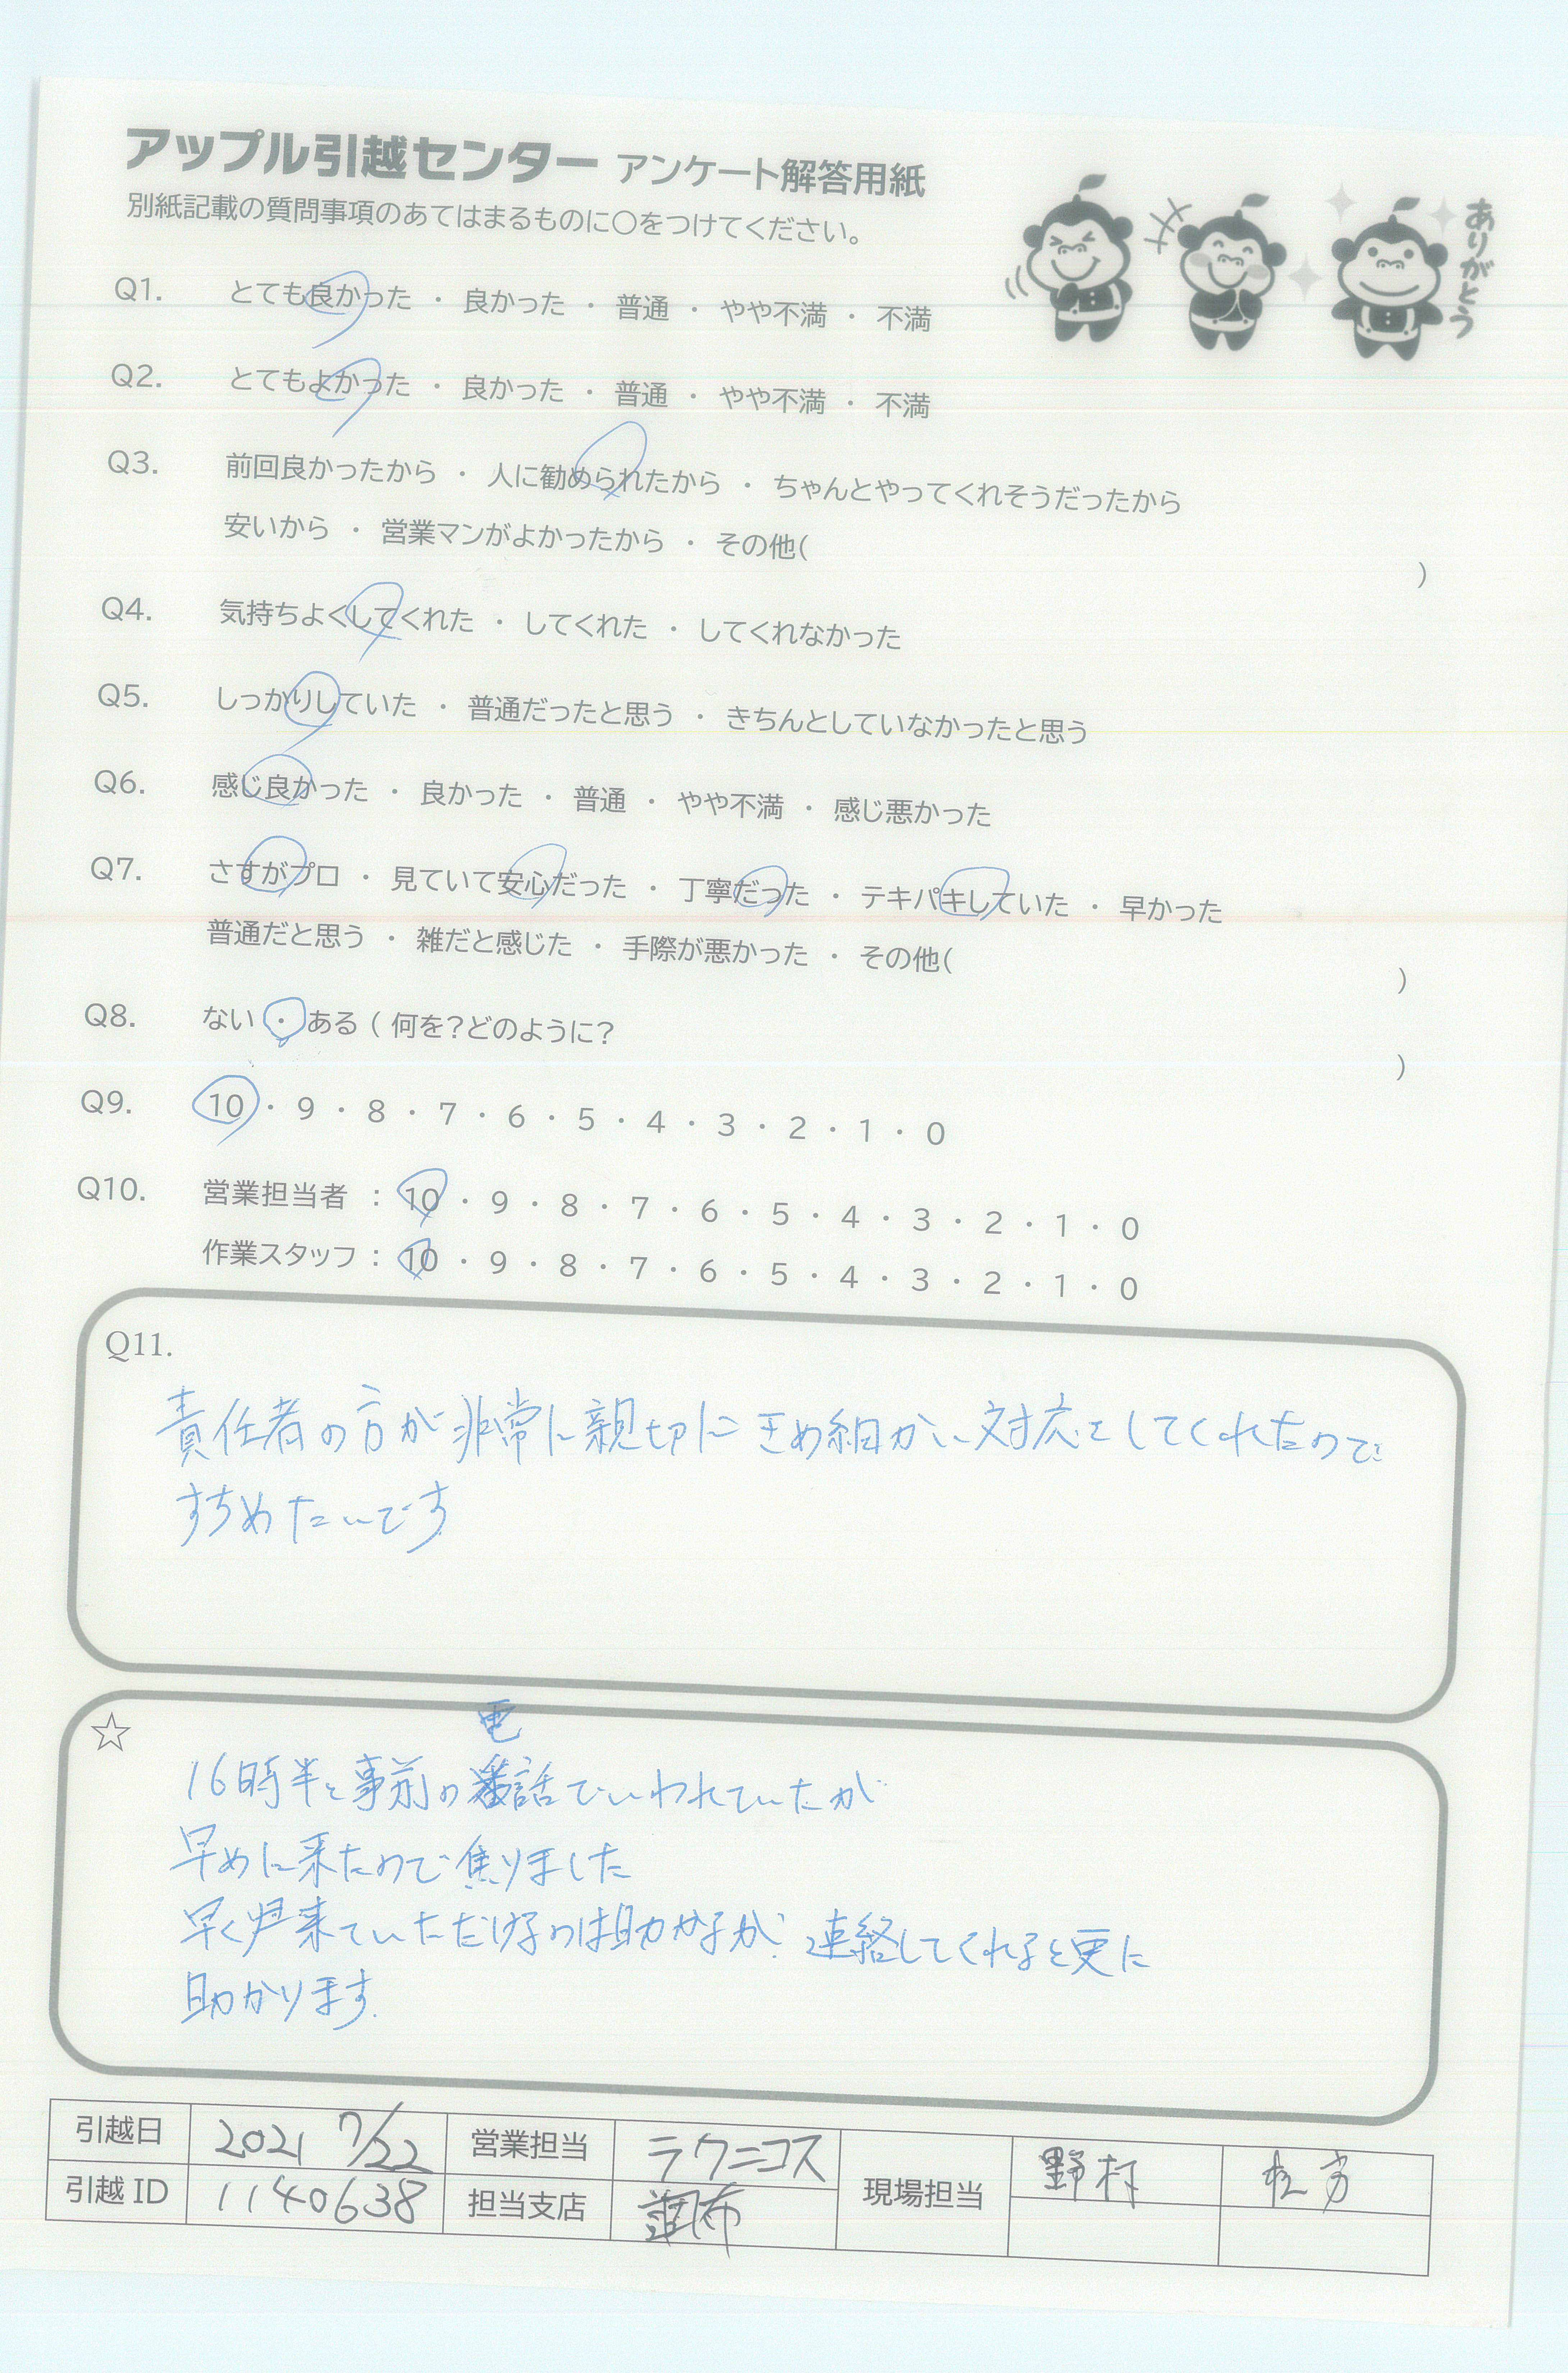 アップル引越センター アンケート解答用紙
別紙記載の質問事項のあてはまるものに○をつけてください。
ありがとう
Q1. とても良かった ・ 良かった ・ 普通 ・ やや不満 ・ 不満
Q2. とてもよかった ・ 良かった ・ 普通 ・ やや不満 ・ 不満
Q3. 前回良かったから ・ 人に勧められたから ・ ちゃんとやってくれそうだったから
安いから ・ 営業マンがよかったから ・ その他( )
Q4. 気持ちよくしてくれた ・ してくれた ・ してくれなかった
Q5. しっかりしていた ・ 普通だったと思う ・ きちんとしていなかったと思う
Q6. 感じ良かった ・ 良かった ・ 普通 ・ やや不満 ・ 感じ悪かった
Q7. さすがプロ ・ 見ていて安心だった ・ 丁寧だった ・ テキパキしていた ・ 早かった
普通だと思う ・ 雑だと感じた ・ 手際が悪かった ・ その他( )
Q8. ない ・ ある ( 何を?どのように? )
Q9. 10 ・ 9 ・ 8 ・ 7 ・ 6 ・ 5 ・ 4 ・ 3 ・ 2 ・ 1 ・ 0
Q10. 営業担当者 : 10 ・ 9 ・ 8 ・ 7 ・ 6 ・ 5 ・ 4 ・ 3 ・ 2 ・ 1 ・ 0
作業スタッフ : 10 ・ 9 ・ 8 ・ 7 ・ 6 ・ 5 ・ 4 ・ 3 ・ 2 ・ 1 ・ 0
Q11.
責任者の方が非常に親切にきめ細かい対応をしてくれたので
すすめたいです
☆
16時半と事前の電話でいわれていたが
早めに来たので焦りました
早く来ていただけるのは助かるが 連絡してくれると更に
助かります.
引越日 2021 7/22 営業担当 ラクニコス 現場担当 野村
引越ID 1140638 担当支店 調布